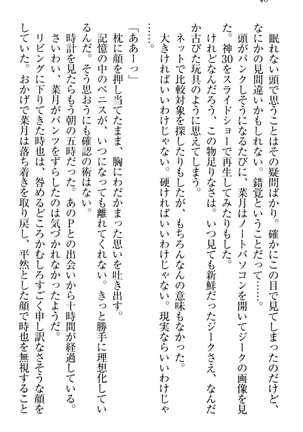 40
眠れない頭で思うことはその疑問ばかり。確かにこの目で見てはいても、
なにかの見間違いかもしれない。錯覚ということだって……。
頭がパンクしそうになるたびに、菜月はノートパソコンを開いてジークの画像を見
た。神30をスライドショーで再生してみたりもした。
けれどなんだろう、この物足りなさは。いつ見ても新鮮だったジークさえ、なんだ
か古びた玩具のように思えてしまう。
ネットで比較対象を探したりもしたが、もちろんなんの意味もなかった。
大きければいいわけじゃない。硬ければいいわけじゃない。現実ならいいわけじゃ
ない。
「ああーっ」
枕に顔を押し当てたまま、胸にわだかまった思いを吐き出す。
記憶の中のペニスが、いつになっても離れてくれない。きっと勝手に理想化してい
るんだ。そう思おうにも確認の術はない。
時計を見たらもう朝の五時だった。あのPとの出会いから十時間が経過している。
さいわい、菜月がパンツをずらしたのは気付かれなかったようだ。
リビングに下りてきた時也は、咎めるどころかむしろすごく申し訳なさそうな顔を
していた。おかげで菜月は落ち着きを取り戻し、平然とした顔で時也を無視すること